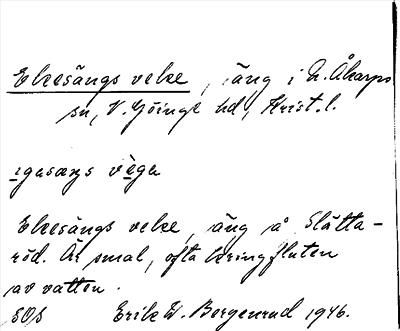 Ekesängs veke, äng i N. Åkarps
sn, V. Göinge hd, Krist. l.
Ekesängs veke, äng å Slätta-
röd. Är smal, ofta kringfluten
av vatten.
Erik W. Bergenrud 1946.